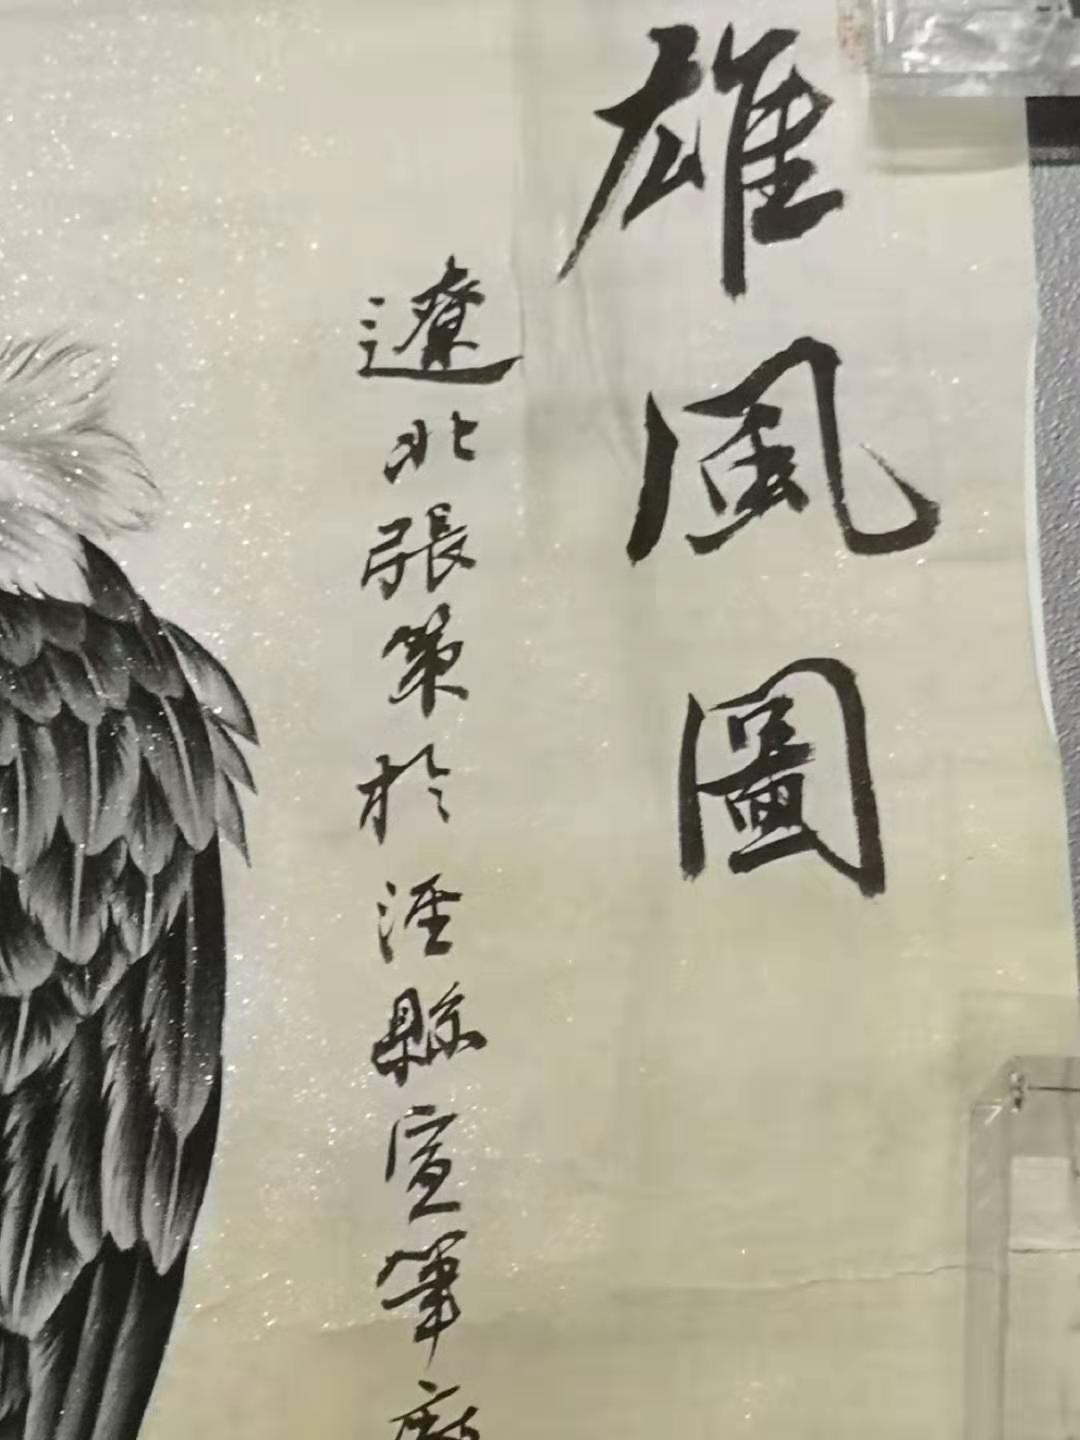 雄風圖
遼北張策於涇縣宣筆廠